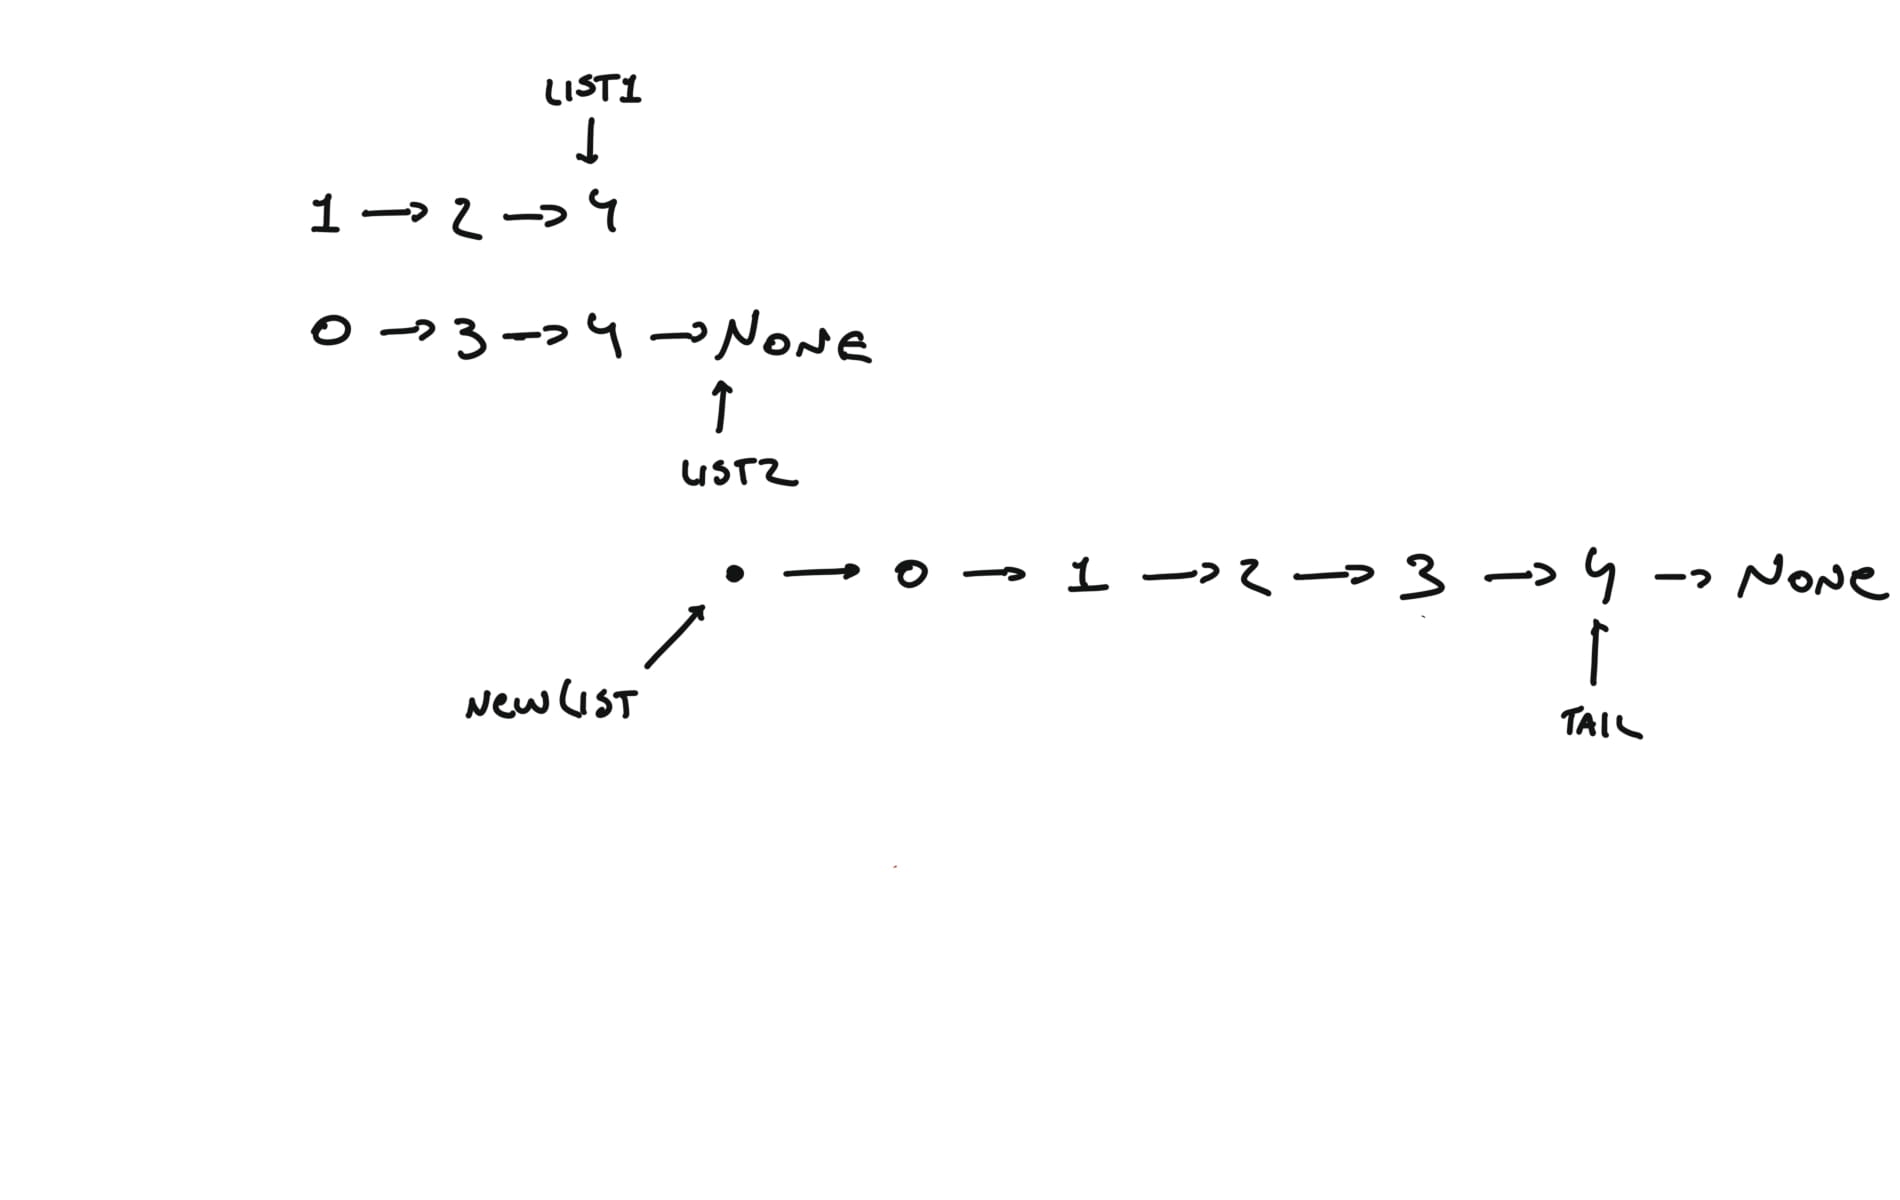 LIST1
↓
1 → 2 → 4
0 → 3 → 4 → NONE
↑
LIST2
• → 0 → 1 → 2 → 3 → 4 → NONE
NEWLIST
TAIL